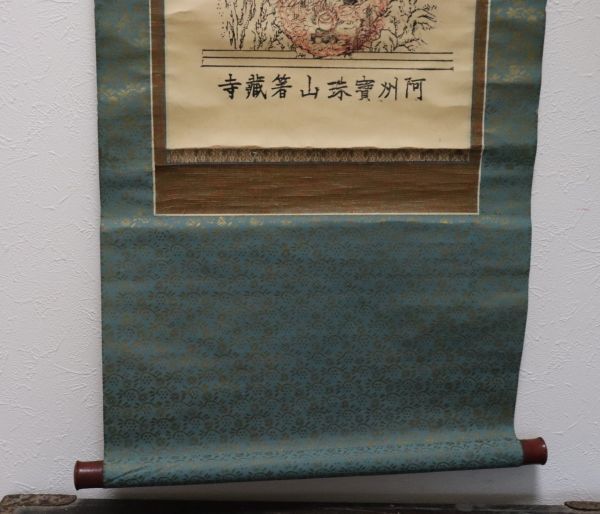 阿州寶珠山箸藏寺